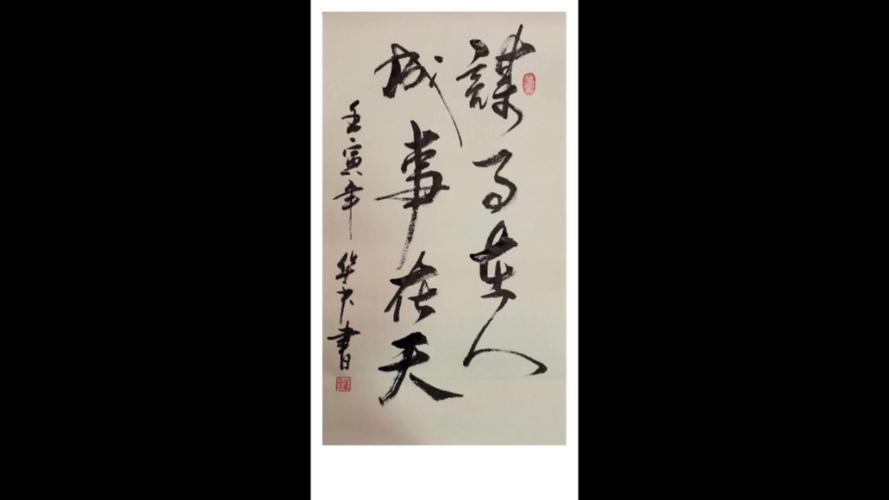 謀事在人
成事在天
壬寅年 华书